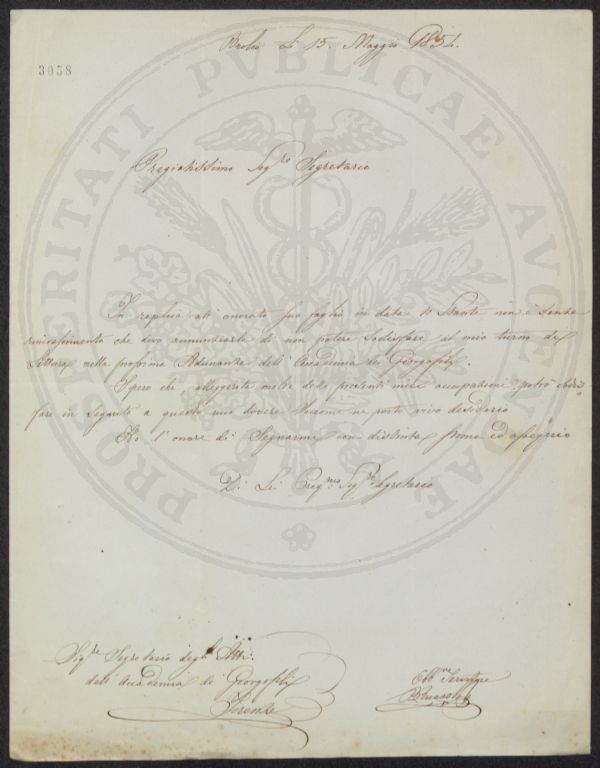 Brolio Li 15. Maggio 1854.
3038
PROSPERITATI PVBLICAE AVGENDAE
Pregiatissimo Sigre Segretario
In replica all' onorato suo foglio in data Stante non è senza
rincrescimento che devo annunziarle di non potere Sodisfare il mio turno di
Lettura nella prossima Adunanza dell' Accademia dei Georgofili.
Spero che alleggerite molte delle presenti mie occupazioni potrò sodis
fare in seguito a questo mio dovere ne porto vivo desiderio
Ho l' onore di Segnarmi con distinta stima ed ossequio
Di Lei Pregmo Sigre Segretario
Sigre Segretario degli Atti
dell' Accademia de Georgofili
Firenze
Obbmo Servitore
BRicasoli